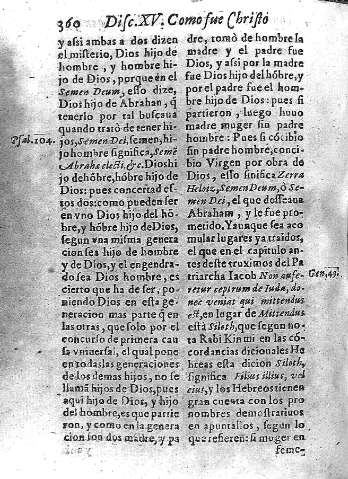 360 Disc. XV. Como fue Christo
y assi ambas a dos dizen
el misterio, Dios hijo de
hombre, y hombre hi-
jo de Dios, porque en el
Semen Deum, esso dize,
Dios hijo de Abrahan, q̃
tenerlo por tal buscaua
quando tratò de tener hi-
Psal. 104.
jos, Semen Dei, semen, hi-
jo hombre significa, Semē
Abrahæ electi, &c. Dios hi
jo de hōbre, hōbre hijo de
Dios: pues concertad es-
tos dos: como pueden ser
en vno Dios hijo del hō-
bre, y hōbre hijo de Dios,
segun vna misma genera
cion sea hijo de hombre
y de Dios, y el engendra-
do sea Dios hombre, es
cierto que ha de ser, po-
niendo Dios en esta ge-
neracion mas parte q̃ en
las otras, que solo por el
concurso de primera cau
sa vniuersal, el qual pone
en todas las generaciones
de los demas hijos, no se
llamā hijos de Dios, pues
aqui hijo de Dios, y hijo
del hombre, es que partie
ron, y como en la genera
cion son dos madre, y pa
dre, tomò de hombre la
madre y el padre fue
Dios, y assi por la madre
fue Dios hijo del hōbre, y
por el padre fue el hom-
bre hijo de Dios: pues si
partieron, luego huuo
madre muger sin padre
hombre: Pues si cōcibio
sin padre hombre, conci-
bio Virgen por obra de
Dios, esso significa Zerra
Heloız, Semen Deum, ò Se-
men Dei, el que desseaua
Abraham, y le fue pro-
metido. Y aunque sea aco
mular lugares ya traidos,
el que en el capitulo an-
tes deste truximos del Pa
triarcha Iacob Non aufe-
Gen. 49.
retur ceptrum de Iuda, do-
nec veniat qui mittendus
est, en lugar de Mittendus
està Siloth, que segun no-
ta Rabi Kimti en las cō-
cordancias dicionales He
breas esta dicion Siloth,
significa Filius illius, vel
eius, y los Hebreos tienen
gran cuenta con los pro
nombres demostratiuos
en apuntallos, segun lo
que refieren: si muger en
feme-